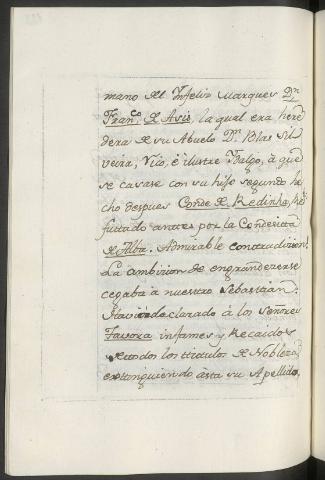 mano del Infeliz Marques Dn.
Franco. de Asis, la qual era here
dera de su Abuelo Dn. Blas Sil
veira, Vio, é ilustre Ydalgo, á que
se casase con su hijo segundo he
cho despues Conde de Redinha, Re
futado antes por la Condesita
de Alba. Admirable contradicion!
La ambicion de engrandecerse
cegaba á nuestro Sebastian.
Havia declarado á los Señores
Tavora infames y Recaidos
de todos los titulos de Nobleza
extinguiendo asta su Apellido,